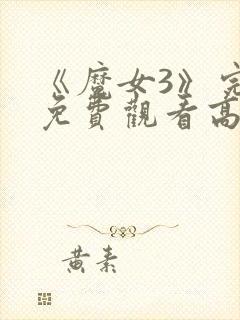 《魔女3》完
免費觀看高
黃素